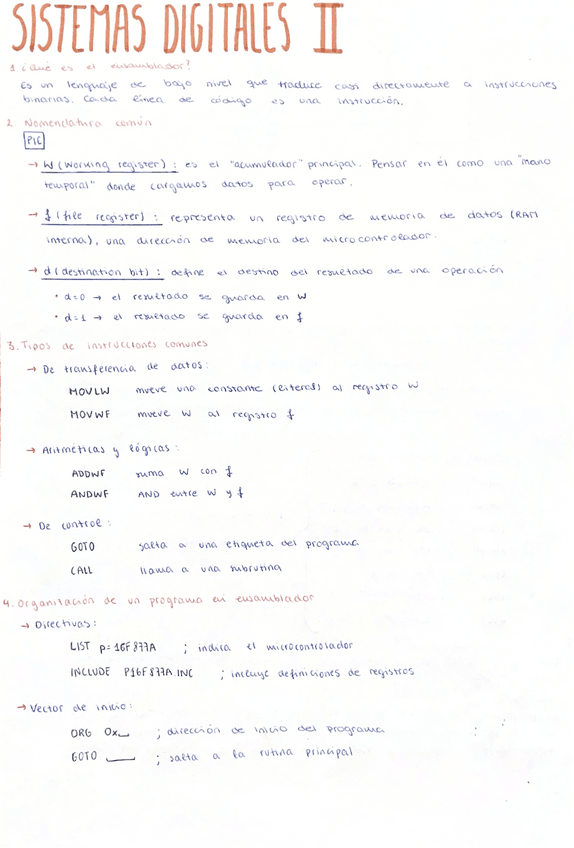 SISTEMAS DIGITALES II
1. ¿Qué es el ensamblador?
Es un lenguaje de bajo nivel que traduce casi directamente a instrucciones
binarias. Cada línea de código es una instrucción.
2. Nomenclatura común
PIC
→ W (working register): es el "acumulador" principal. Pensar en él como una "mano
temporal" donde cargamos datos para operar.
→ f (file register): representa un registro de memoria de datos (RAM
interna), una dirección de memoria del microcontrolador.
→ d (destination bit): define el destino del resultado de una operación
• d=0 → el resultado se guarda en W
• d=1 → el resultado se guarda en f
3. Tipos de instrucciones comunes
→ De transferencia de datos:
MOVLW mueve una constante (literal) al registro W
MOVWF mueve W al registro f
→ Aritméticas y lógicas:
ADDWF suma W con f
ANDWF AND entre W y f
→ De control:
GOTO salta a una etiqueta del programa
CALL llama a una subrutina
4. Organización de un programa en ensamblador
→ Directivas:
LIST p=16F877A ; indica el microcontrolador
INCLUDE P16F877A.INC ; incluye definiciones de registros
→ Vector de inicio:
ORG 0x__ ; dirección de inicio del programa
GOTO ____ ; salta a la rutina principal